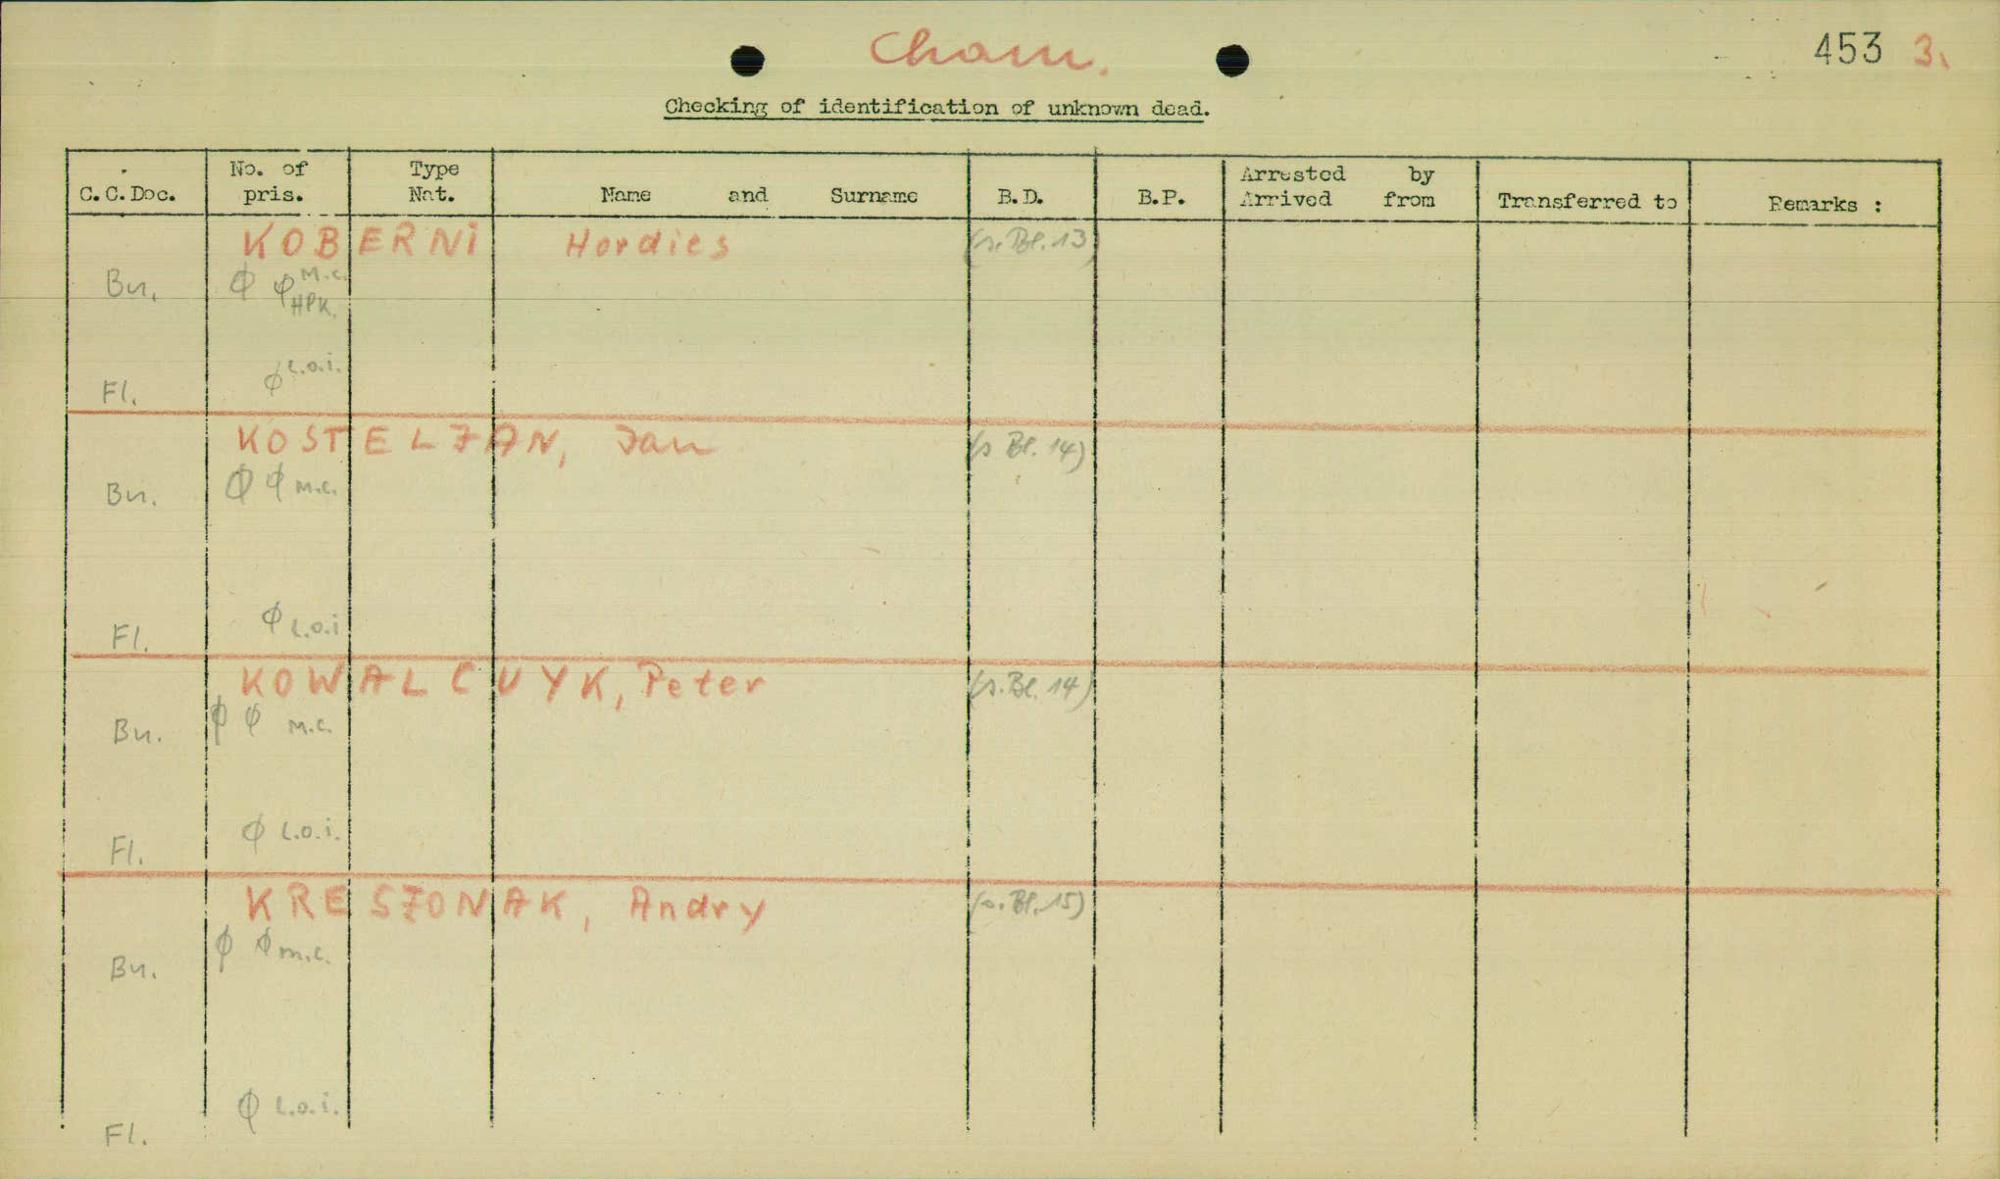 Cham.
453 3.
Checking of identification of unknown dead.
C.C.Doc. No. of pris. Type Nat. Name and Surname B.D. B.P. Arrested by Arrived from Transferred to Remarks :
KOBERNI Hordies (s. Bl. 13)
Bu. ϕ ϕ M.C. HPK.
Fl. ϕ L.o.i.
KOSTELJAN, Jan (s Bl. 14)
Bu. ϕ ϕ M.C.
Fl. ϕ L.o.i
KOWALCUYK, Peter (s. Bl. 14)
Bu. ϕ ϕ M.C.
Fl. ϕ L.o.i.
KRESZONAK, Andry (s. Bl. 15)
Bu. ϕ ϕ m.c.
Fl. ϕ L.o.i.